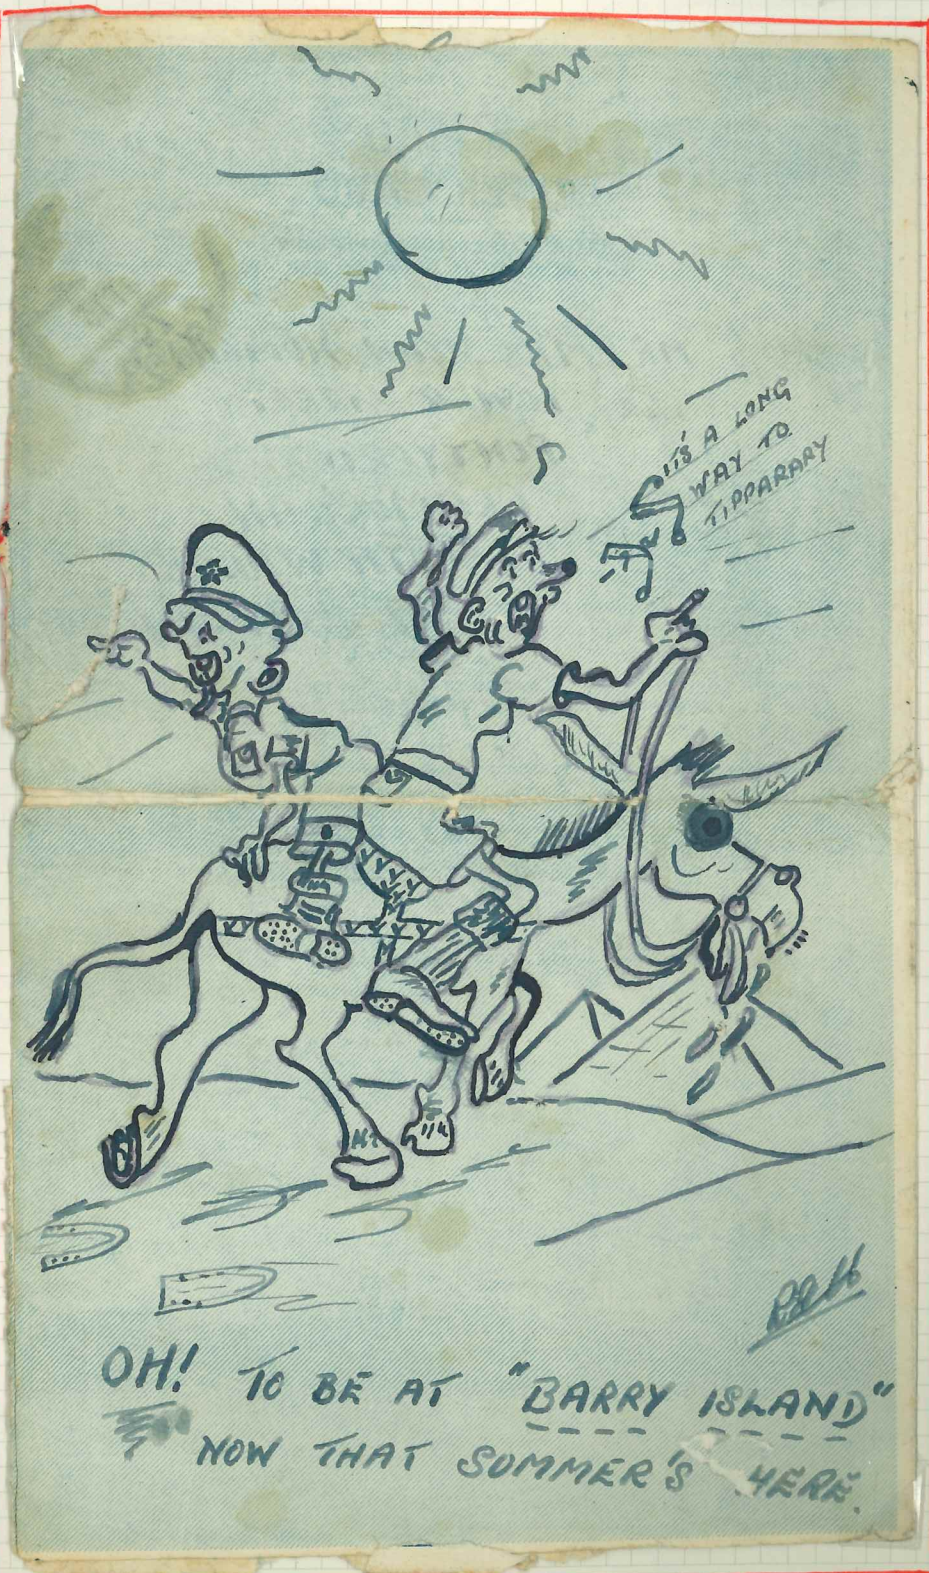 IT'S A LONG
WAY TO
TIPPARARY
OH! TO BE AT "BARRY ISLAND"
NOW THAT SUMMER'S HERE.